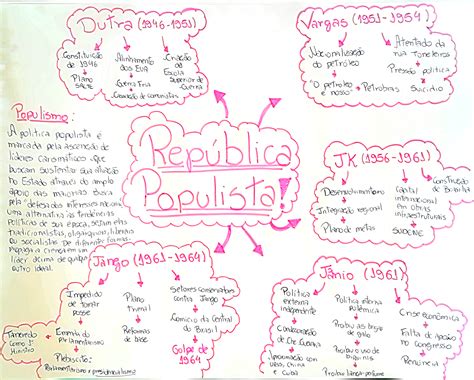 Dutra (1946-1951)
Constituição
de 1946
Plano
SALTE
Alinhamento
dos EUA
Guerra Fria
Cassação de comunistas
Criação
da
Escola
Superior de
Guerra
Vargas (1951-1954)
Nacionalização
do petróleo
"O petróleo
é nosso"
Petrobras
Atentado da
rua Toneleros
Pressão política
Suicídio
Populismo:
A política populista é
marcada pela ascensão de
líderes carismáticos que
buscam sustentar sua atuação
no Estado através do amplo
apoio das maiorias. Busca
pela "defesa dos interesses nacionais"
uma alternativa às tendências
políticas de sua época, sejam elas
tradicionalistas, oligárquicas, liberais
ou socialistas. De diferentes formas
a crença em um
líder acima de qualquer
outro ideal.
República
Populista!
JK (1956-1961)
Desenvolvimentismo
Integração regional
Plano de metas
Capital
internacional
em obras
infraestruturais
SUDENE
Construção
de Brasília
Jango (1961-1964)
Impedido
de tomar
posse
Tancredo
como 1º
Ministro
Emenda do
Parlamentarismo
Plebiscito:
Parlamentarismo x presidencialismo
Plano
Trienal
Reformas
de base
Setores conservadores
contra Jango
Comício da Central
do Brasil
Golpe de
1964
Jânio (1961)
Política
externa
independente
Condecoração
de Che Guevara
Aproximação com
URSS, China
e Cuba
Política
interna
polêmica
Proibiu as brigas de
galo
Proibiu o uso de
biquínis
Proibiu lança-perfume
Crise econômica
Falta de apoio
no congresso
Renúncia